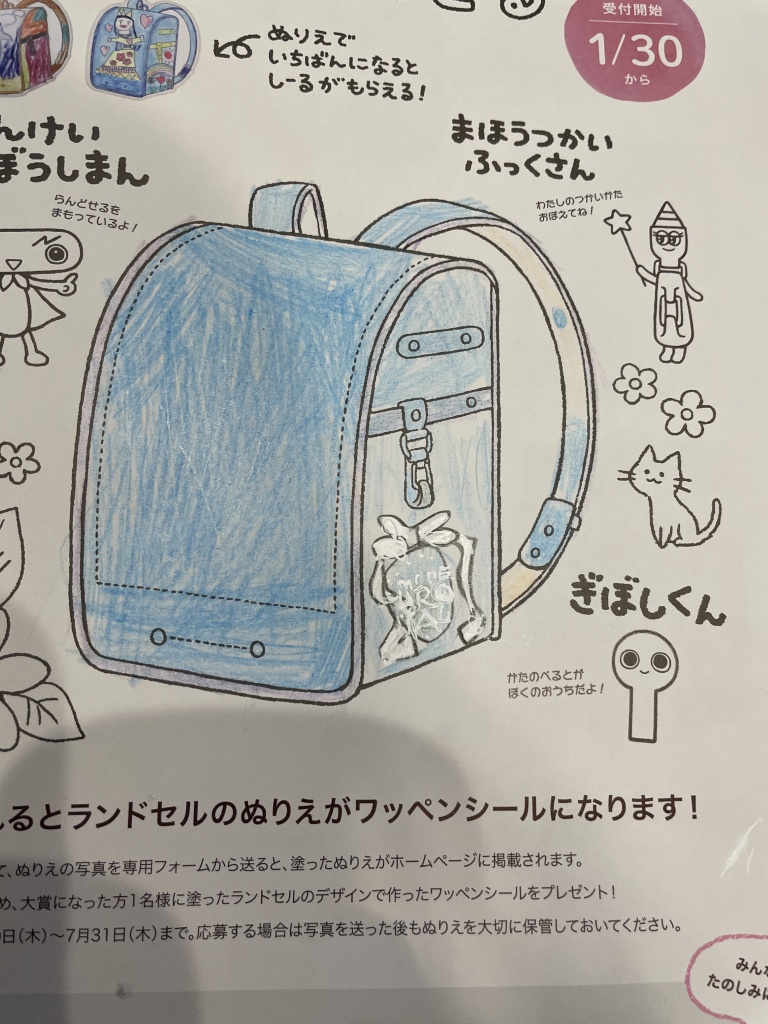 受付開始
1/30
から
ぬりえで
いちばんになると
しーるがもらえる！
んけい
ぼうしまん
らんどせるを
まもっているよ！
まほうつかい
ふっくさん
わたしのつかいかた
おぼえてね！
ぎぼしくん
かたのべるとが
ぼくのおうちだよ！
るとランドセルのぬりえがワッペンシールになります！
て、ぬりえの写真を専用フォームから送ると、塗ったぬりえがホームページに掲載されます。
め、大賞になった方1名様に塗ったランドセルのデザインで作ったワッペンシールをプレゼント！
日（木）〜7月31日（木）まで。応募する場合は写真を送った後もぬりえを大切に保管しておいてください。
みん
たのしみに